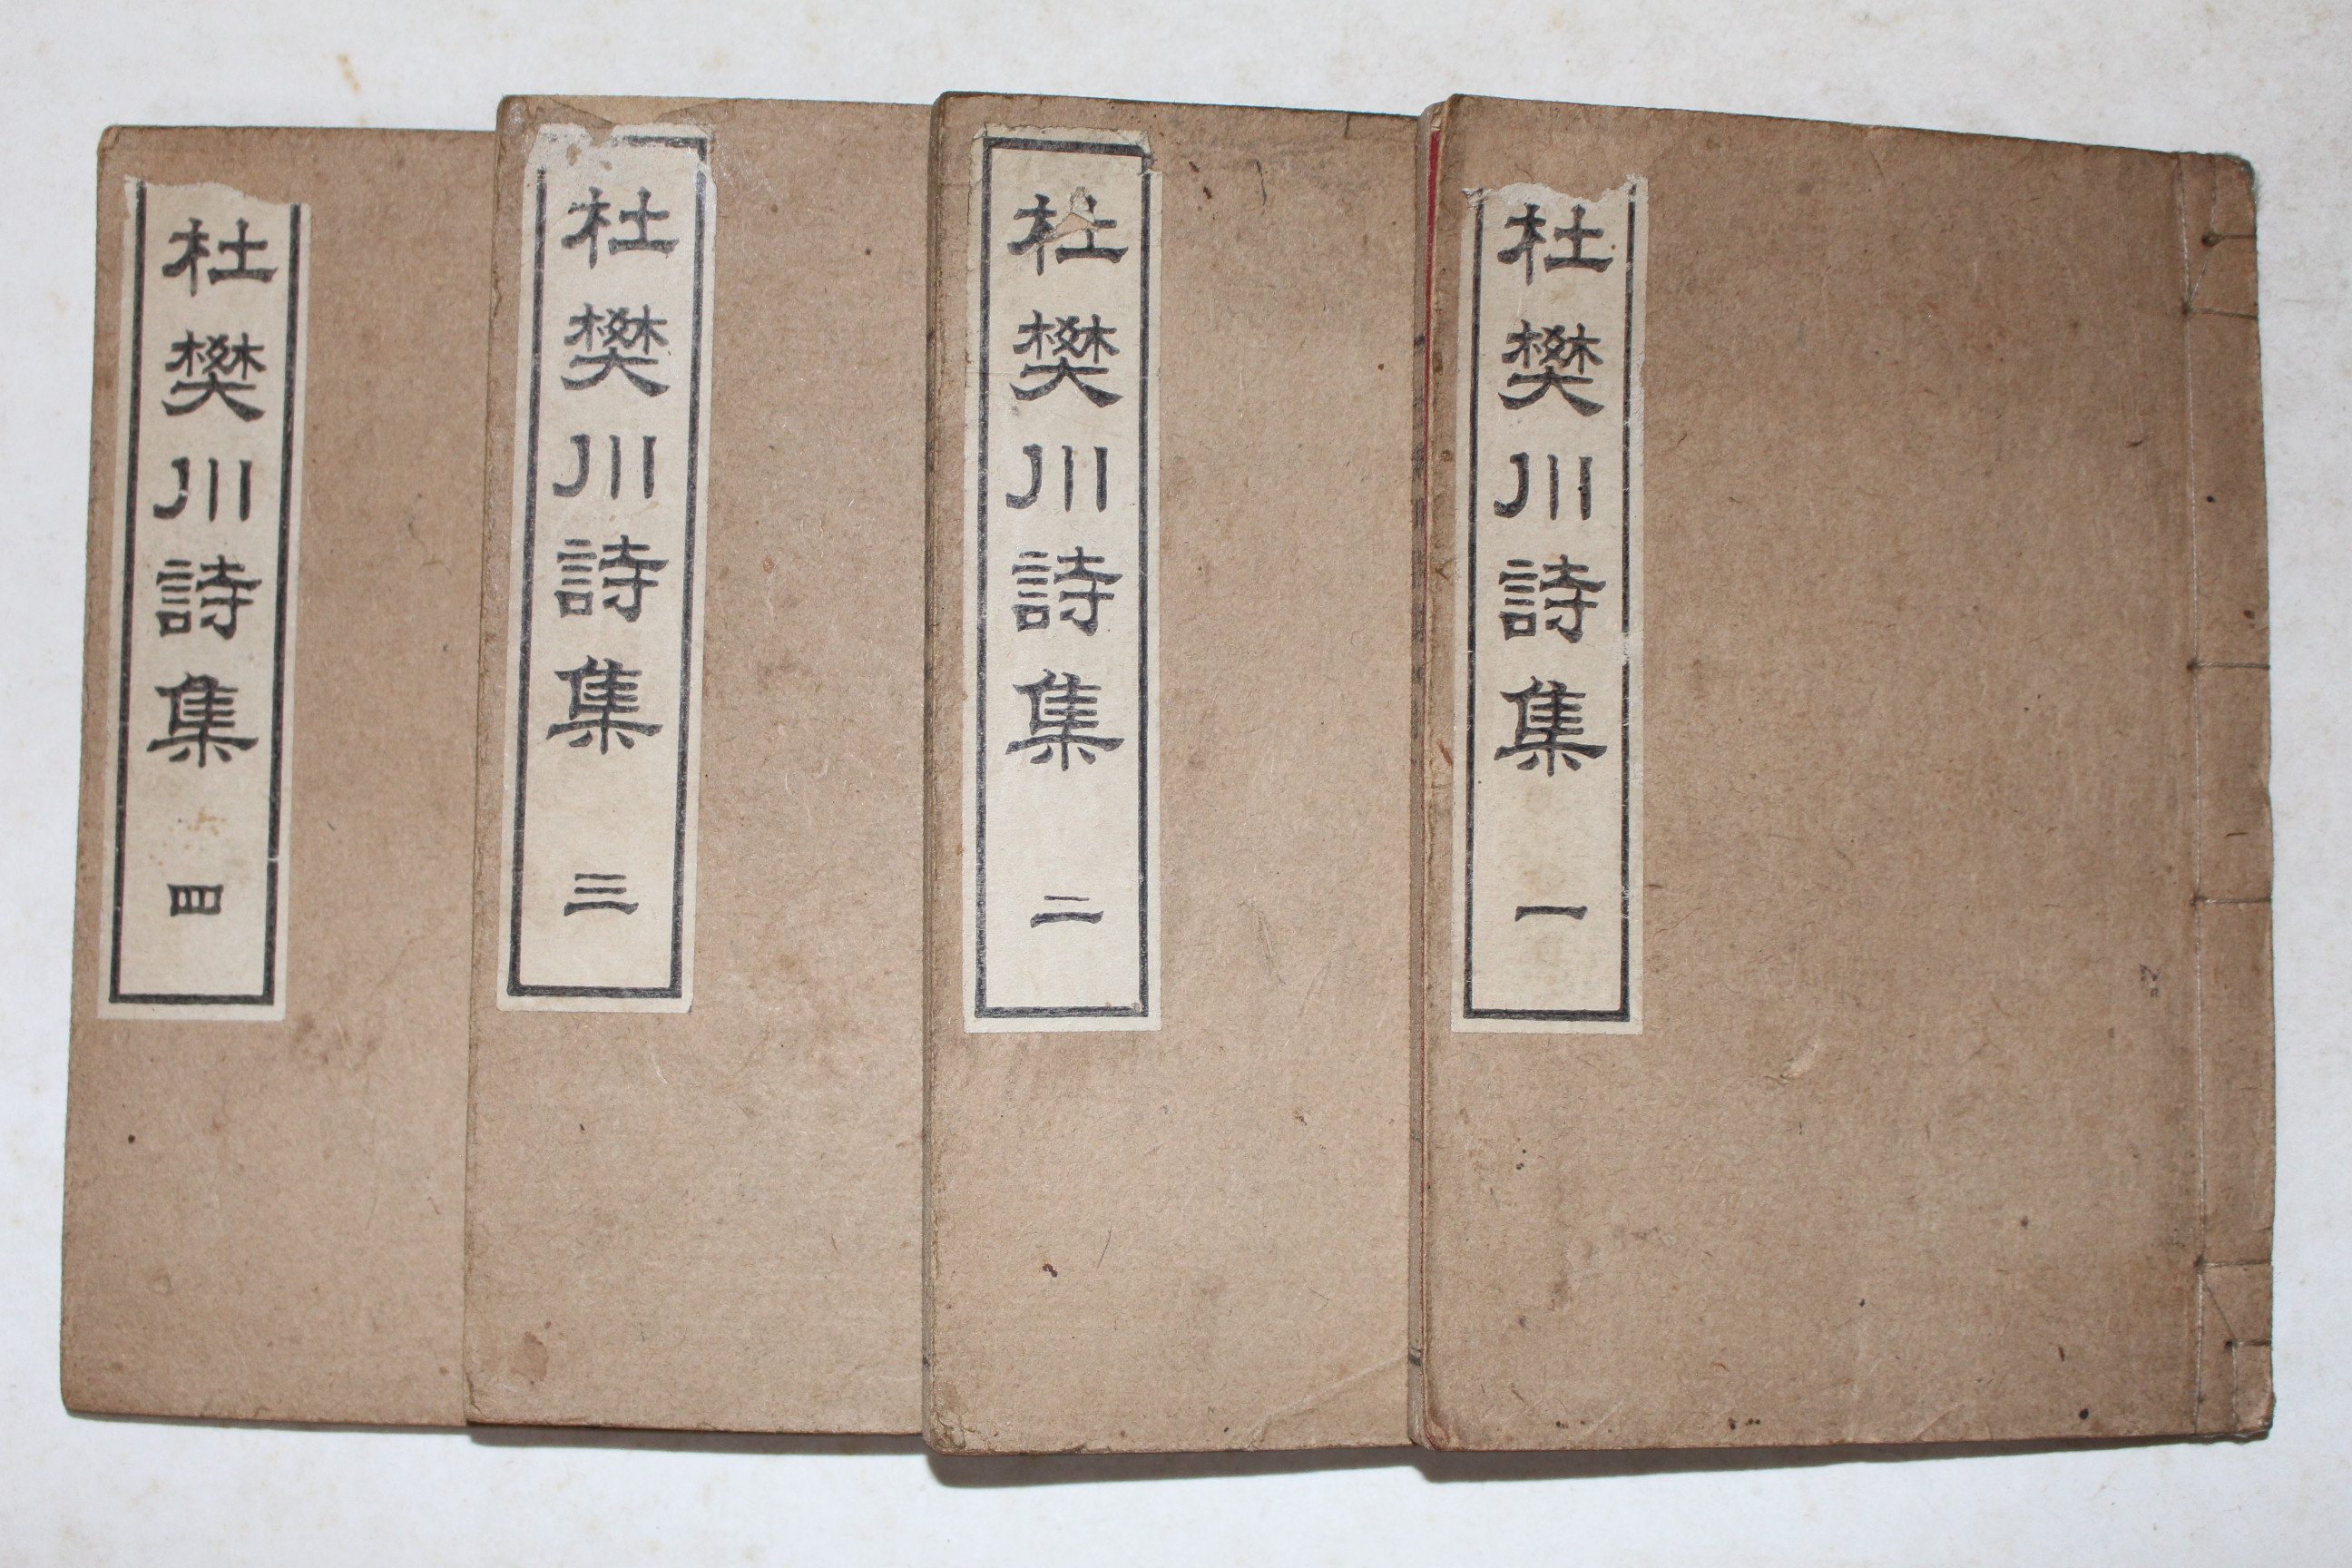 杜樊川詩集 一
杜樊川詩集 二
杜樊川詩集 三
杜樊川詩集 四